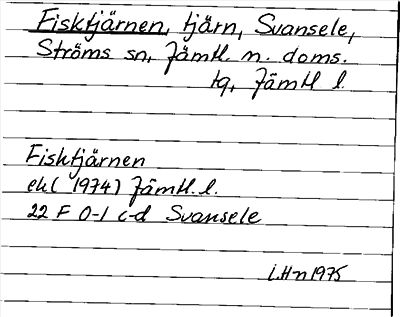 Fisktjärnen, tjärn, Svansele,
Ströms sn, Jämtl. n. doms.
tq, Jämtl l.
Fisktjärnen
ek ( 1974) Jämtl. l.
22 F 0-1 c-d Svansele
1975